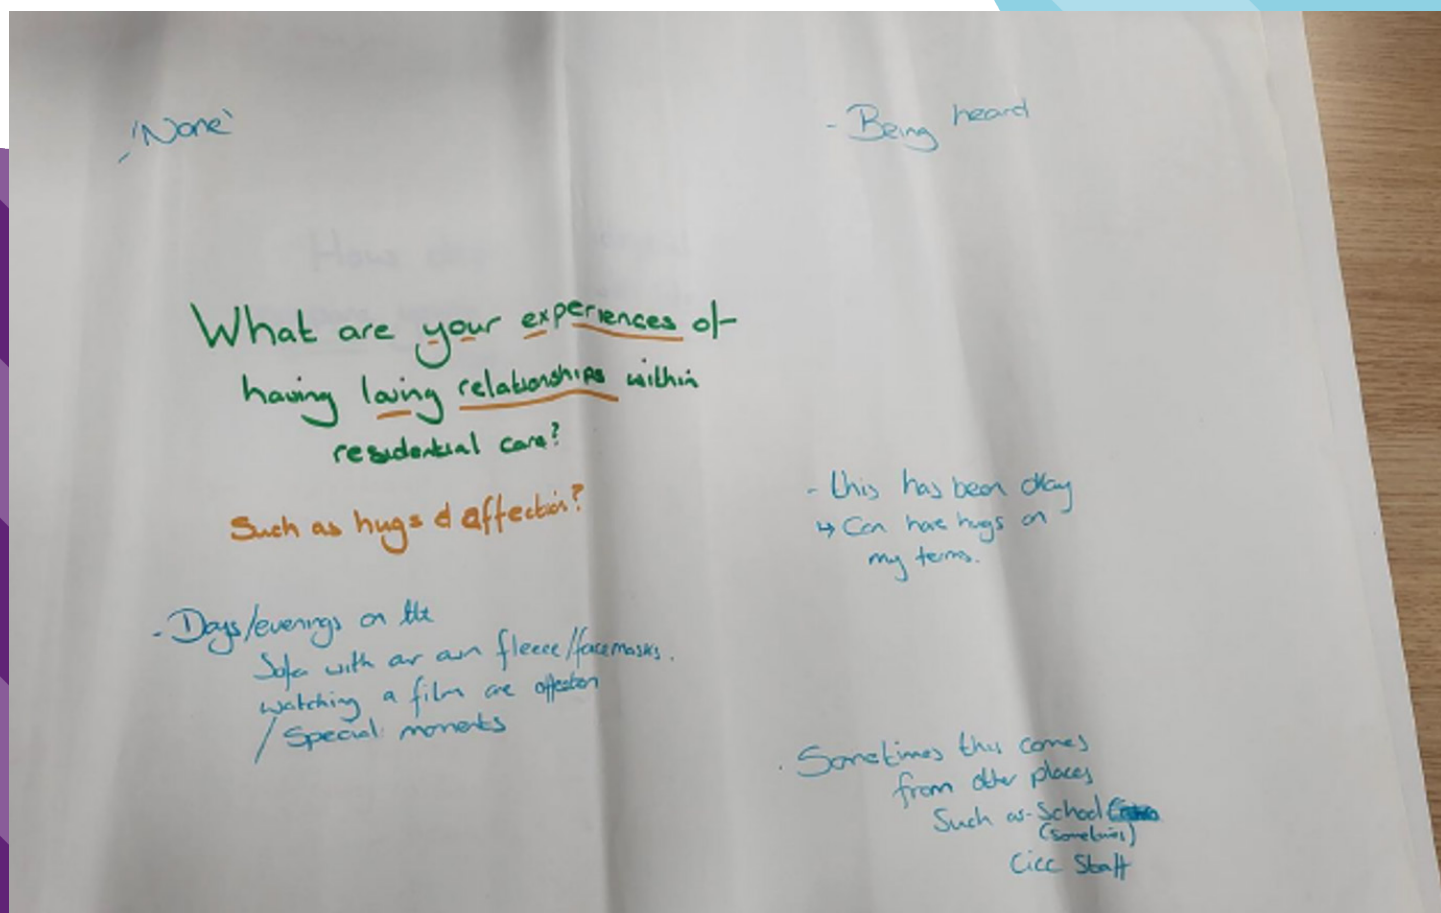 - 'None'
- Being heard
What are your experiences of
having loving relationships within
residential care?
Such as hugs & affection?
- this has been okay
↳ Can have hugs on
my terms.
- Days/evenings on the
Sofa with our own fleece/facemasks.
watching a film are affection
/ Special moments
. Sometimes this comes
from other places
Such as - School
(sometimes)
CiCC Staff